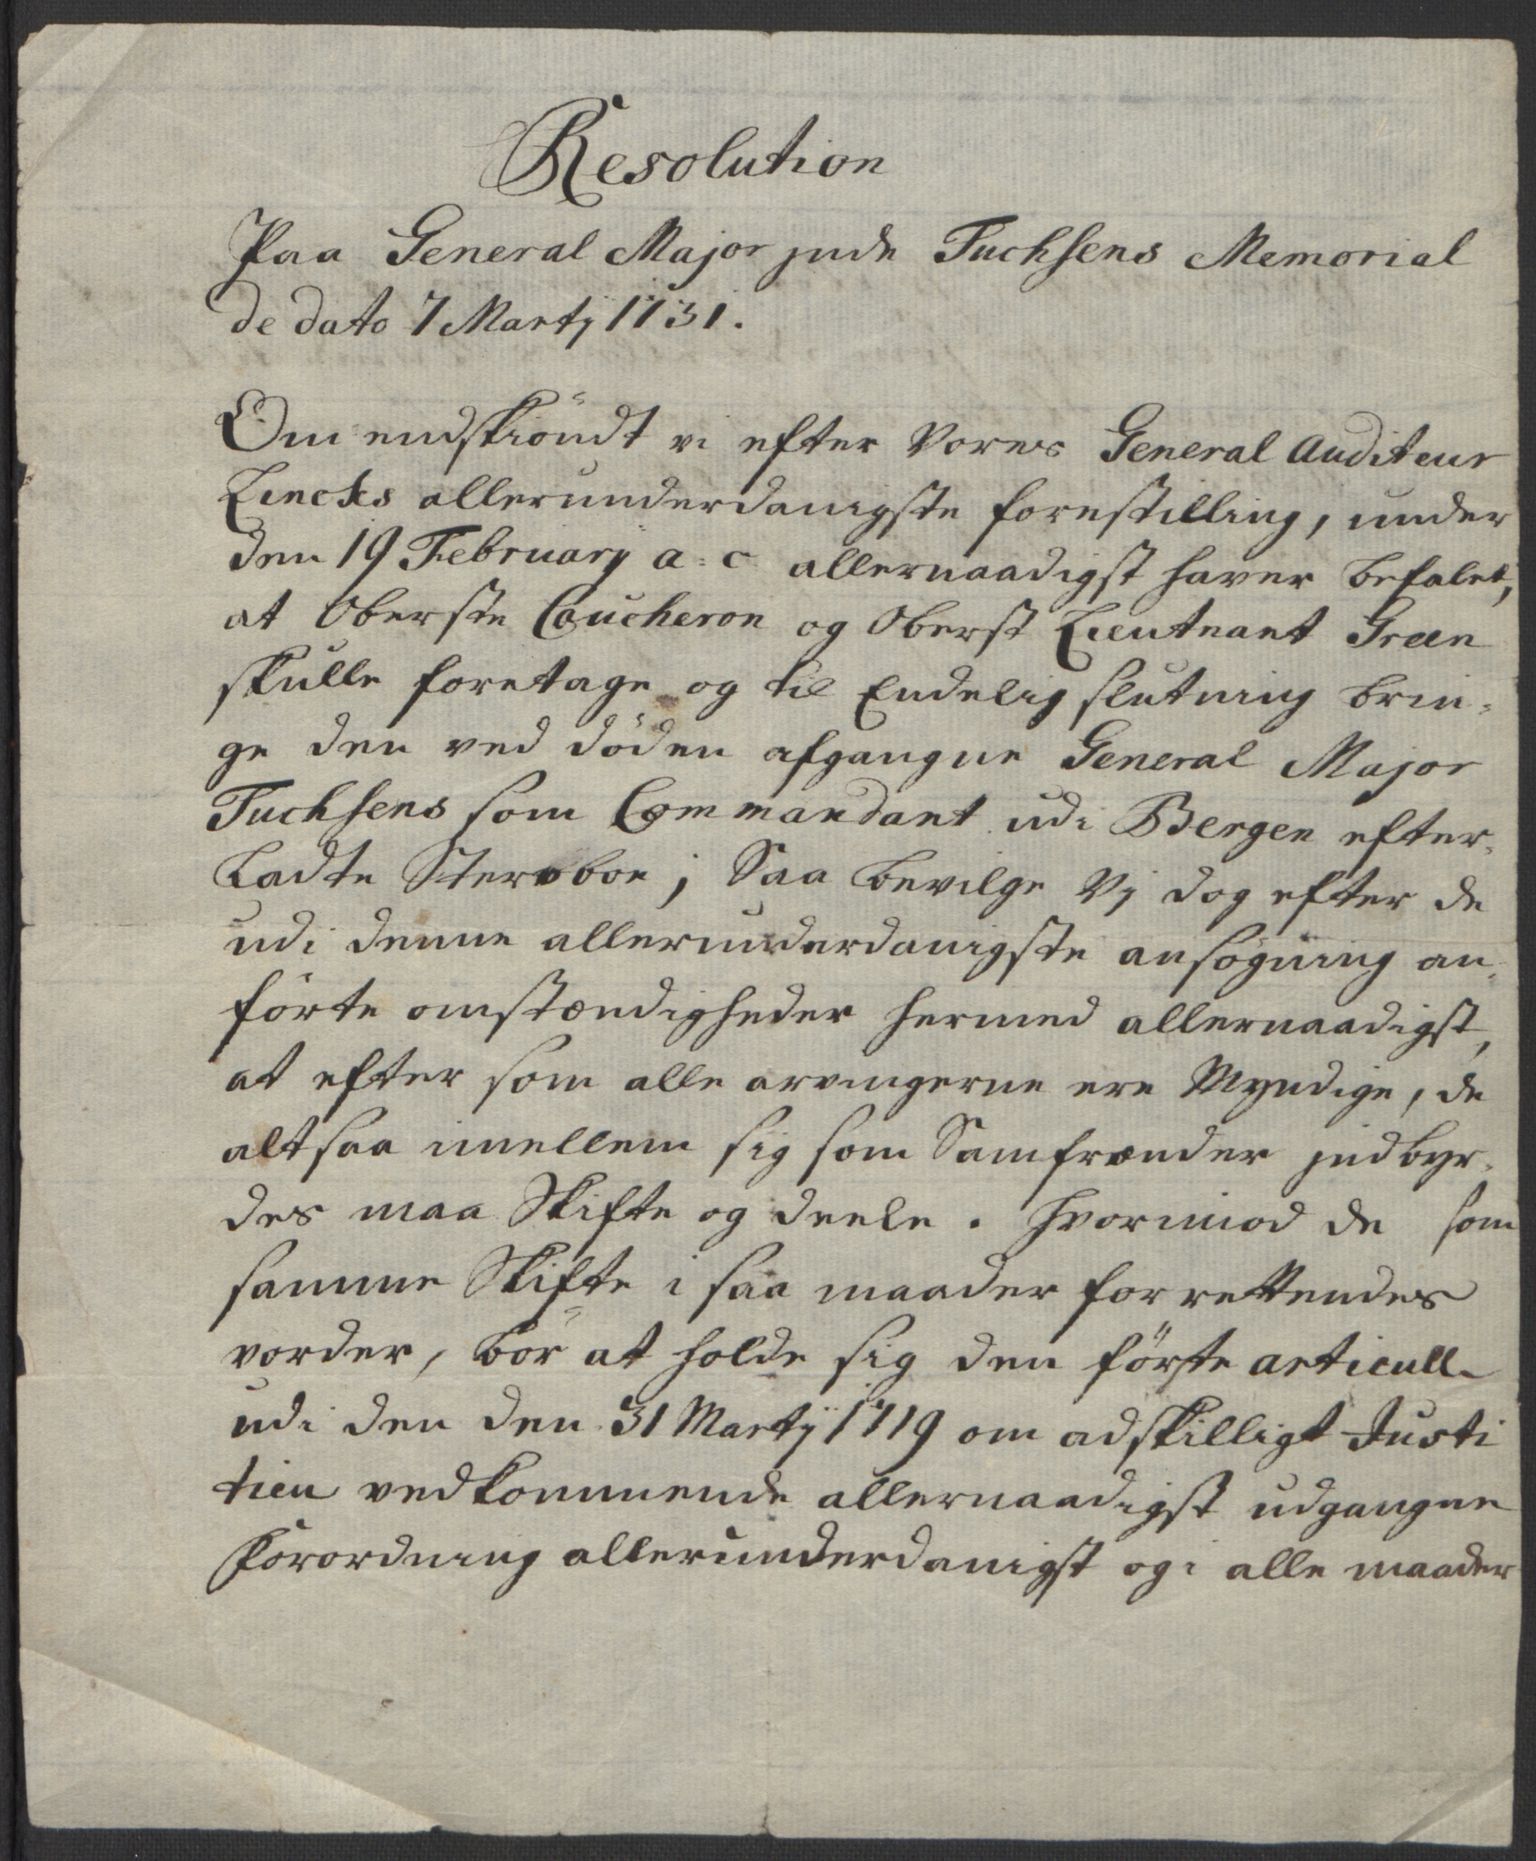 Resolution
Paa General Major jnde Fuchsens Memorial
de dato 7 Martj 1731.
Om endskiöndt vi efter Vores General Auditeur
Lincks allerunderdanigste forestilling, under
den 19 Februarij a: c allernaadigst haver befalet,
at Oberste Coucheron og Oberst Lieutnant Green
skulle foretage og til Endelig slutning brin-
ge den ved döden afgangne General Major
Fuchsens som Commandant udi Bergen efter-
ladte Sterboe; Saa bevilge Vj dog efter de
udi denne allerunderdanigste ansögning an-
förte omstændigheder hermed allernaadigst,
at efter som alle arvingerne ere Myndige, de
altsaa imellem sig som Samfrænder jndbyr-
des maa Skifte og deele. hvorimod de som
samme Skifte i saa maader forrettendes
vorder, bör at holde sig den förste articull
udi den den 31 Martij 1719 om adskilligt Justi
tien vedkommende allernaadigst udgangne
Forordning allerunderdanigst og i alle maader